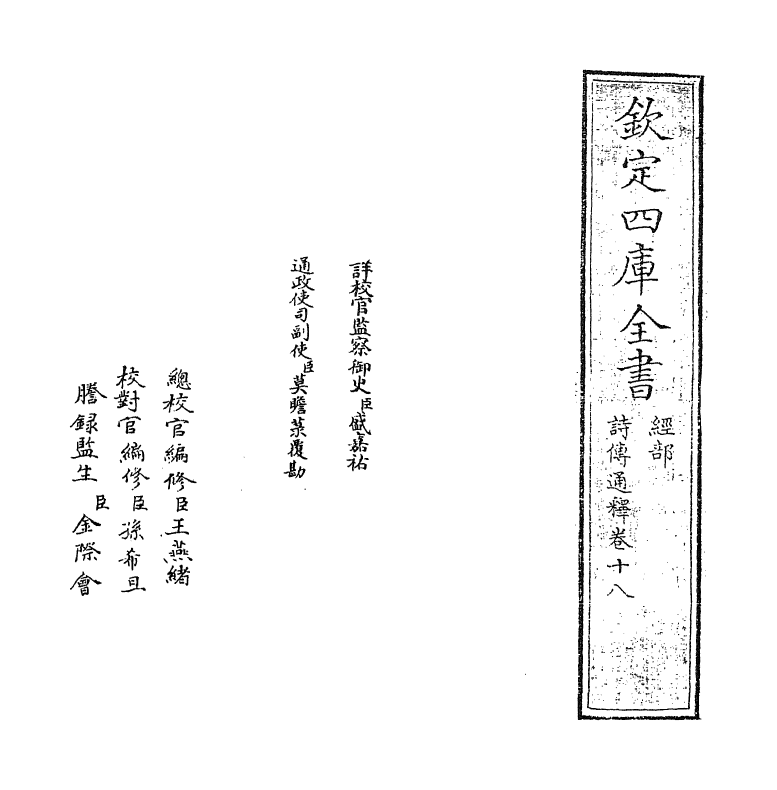 欽定四庫全書
經部
詩傳通釋卷十八
詳校官監察御史臣盛嘉祐
通政使司副使臣莫瞻菉覆勘
總校官編修臣王燕緒
校對官編修臣孫希旦
謄錄監生臣金際會